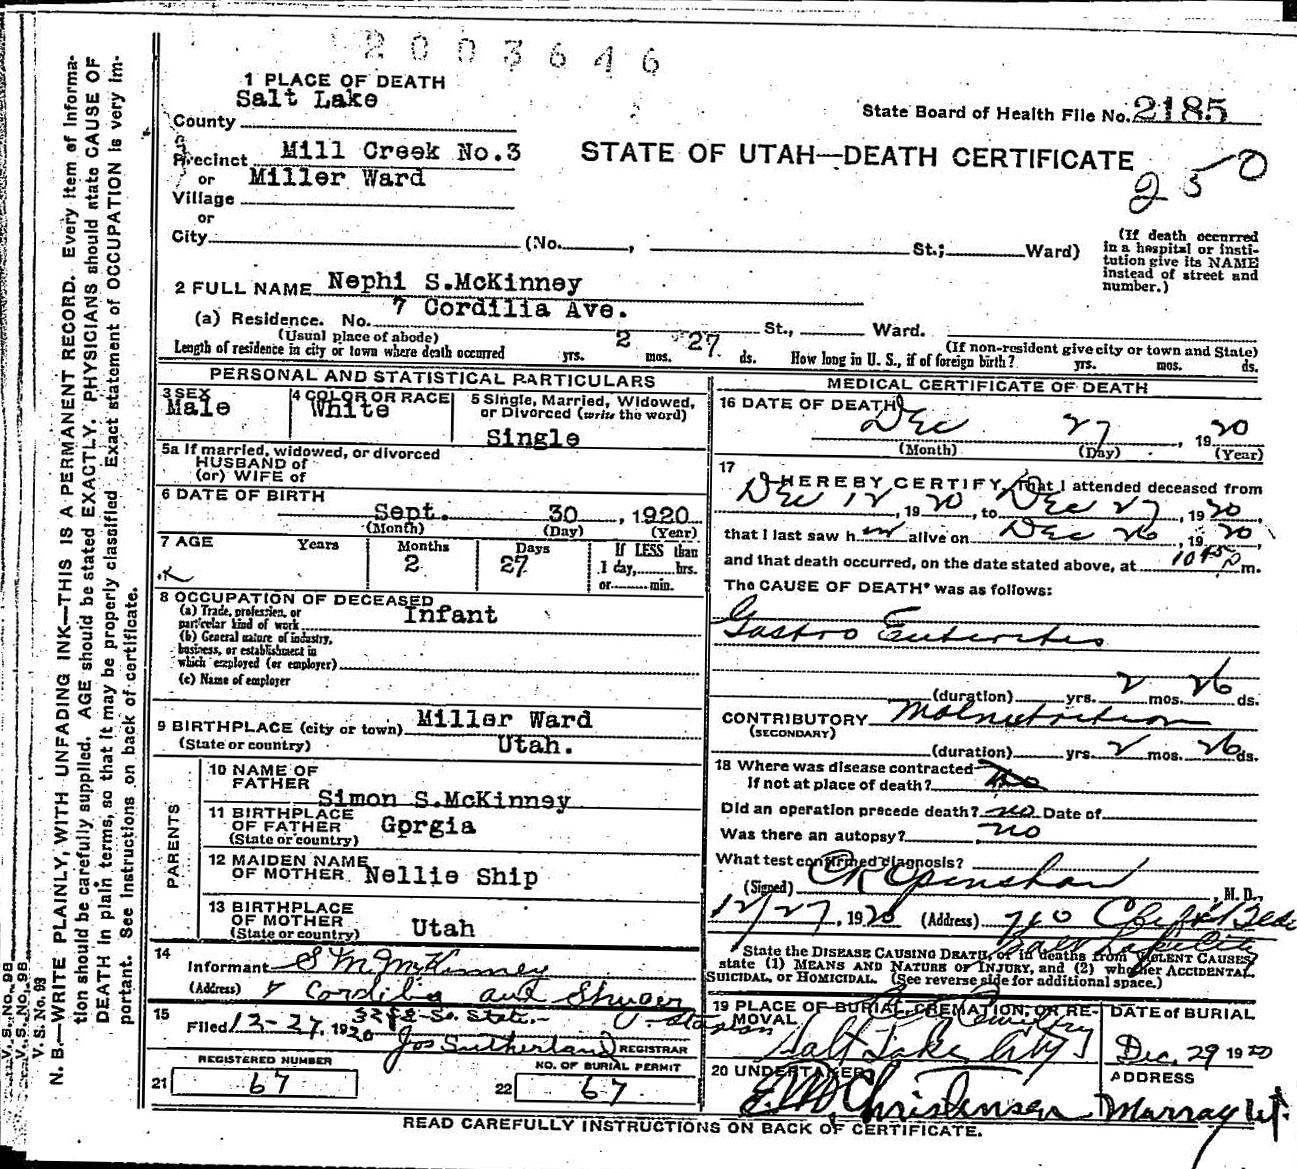 2003646
1 PLACE OF DEATH
Salt Lake
County
State Board of Health File No. 2185
Precinct Mill Creek No.3
STATE OF UTAH—DEATH CERTIFICATE
250
or Miller Ward
Village
or
City (No. , St.; Ward)
(If death occurred in a hospital or insti-
tution give its NAME instead of street and number.)
2 FULL NAME Nephi S.McKinney
(a) Residence. No. 7 Cordilia Ave. St., Ward.
(Usual place of abode) (If non-resident give city or town and State)
Length of residence in city or town where death occurred yrs. 2 mos. 27 ds. How long in U. S., if of foreign birth? yrs. mos. ds.
PERSONAL AND STATISTICAL PARTICULARS
3 SEX Male
4 COLOR OR RACE White
5 Single, Married, Widowed, or Divorced (write the word)
Single
5a If married, widowed, or divorced
HUSBAND of
(or) WIFE of
6 DATE OF BIRTH
Sept. 30, 1920
(Month) (Day) (Year)
7 AGE Years Months 2 Days 27 If LESS than
1 day, hrs.
or min.
8 OCCUPATION OF DECEASED
(a) Trade, profession, or
particular kind of work Infant
(b) General nature of industry,
business, or establishment in
which employed (or employer)
(c) Name of employer
9 BIRTHPLACE (city or town) Miller Ward
(State or country) Utah.
PARENTS
10 NAME OF FATHER Simon S.McKinney
11 BIRTHPLACE OF FATHER Gprgia
(State or country)
12 MAIDEN NAME OF MOTHER Nellie Ship
13 BIRTHPLACE OF MOTHER Utah
(State or country)
14 Informant S M McKinney
(Address) 7 Cordilia and
15 Filed 12-27, 1920 Jos Sutherland REGISTRAR
32 So. State.
REGISTERED NUMBER
21 67
NO. OF BURIAL PERMIT
22 67
MEDICAL CERTIFICATE OF DEATH
16 DATE OF DEATH
Dec 27, 1920
(Month) (Day) (Year)
17 I HEREBY CERTIFY, That I attended deceased from
Dec 12, 1920, to Dec 27, 1920,
that I last saw him alive on Dec 26, 1920,
and that death occurred, on the date stated above, at 10 45 P m.
The CAUSE OF DEATH* was as follows:
Gastro Enteritis
(duration) yrs. 2 mos. 26 ds.
CONTRIBUTORY Malnutrition
(SECONDARY)
(duration) yrs. 2 mos. 26 ds.
18 Where was disease contracted
If not at place of death? no
Did an operation precede death? no Date of
Was there an autopsy? no
What test confirmed diagnosis?
(Signed) C R Openshaw, M. D.
12/27, 1920 (Address) 710 Clift Bldg
Salt Lake City
State the DISEASE CAUSING DEATH, or in deaths from VIOLENT CAUSES,
state (1) MEANS AND NATURE OF INJURY, and (2) whether ACCIDENTAL,
SUICIDAL, OR HOMICIDAL. (See reverse side for additional space.)
19 PLACE OF BURIAL, CREMATION, OR RE-
MOVAL
Salt Lake City
DATE of BURIAL
Dec. 29 1920
20 UNDERTAKER
E. M. Christensen
ADDRESS
Murray Ut.
READ CAREFULLY INSTRUCTIONS ON BACK OF CERTIFICATE.
N. B.—WRITE PLAINLY, WITH UNFADING INK—THIS IS A PERMANENT RECORD. Every item of informa-
tion should be carefully supplied. AGE should be stated EXACTLY. PHYSICIANS should state CAUSE OF
DEATH in plain terms, so that it may be properly classified. Exact statement of OCCUPATION is very im-
portant. See instructions on back of certificate.
V. S. No. 98
V. S. No. 98
V. S. No. 98